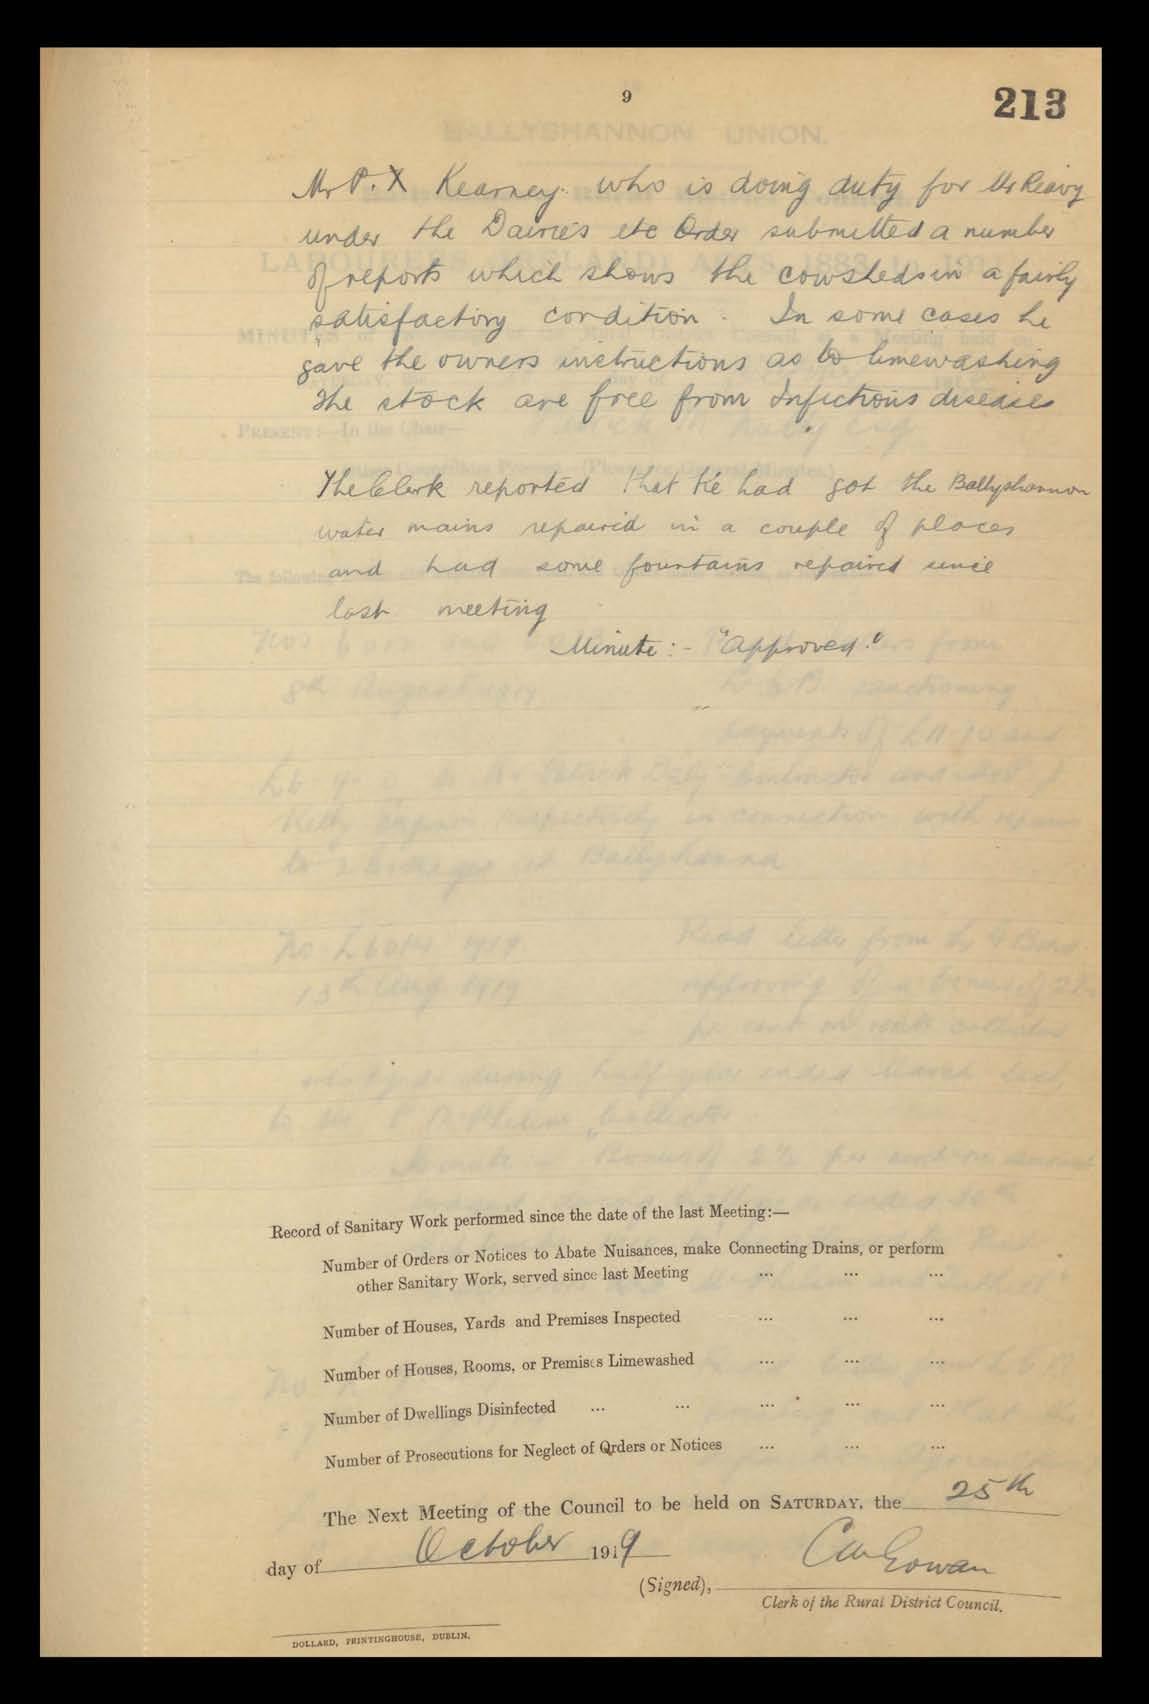 9
213
Mr P. X Kearney who is doing duty for Mr Reavy
under the Dairies etc Order submitted a number
of reports which shows the cowsheds in a fairly
satisfactory condition. In some cases he
gave the owners instructions as to limewashing
The stock are free from Infectious diseases
The Clerk reported that he had got the Ballyshannon
water mains repaired in a couple of places
and had some fountains repaired since
last meeting
Minute :- "Approved."
Record of Sanitary Work performed since the date of the last Meeting:—
Number of Orders or Notices to Abate Nuisances, make Connecting Drains, or perform
other Sanitary Work, served since last Meeting ... ... ...
Number of Houses, Yards and Premises Inspected ... ... ...
Number of Houses, Rooms, or Premises Limewashed ... ... ...
Number of Dwellings Disinfected ... ... ... ... ...
Number of Prosecutions for Neglect of Orders or Notices ... ... ...
The Next Meeting of the Council to be held on SATURDAY, the 25th
day of October 1919
(Signed), Gowan
Clerk of the Rural District Council.
DOLLARD, PRINTINGHOUSE, DUBLIN.